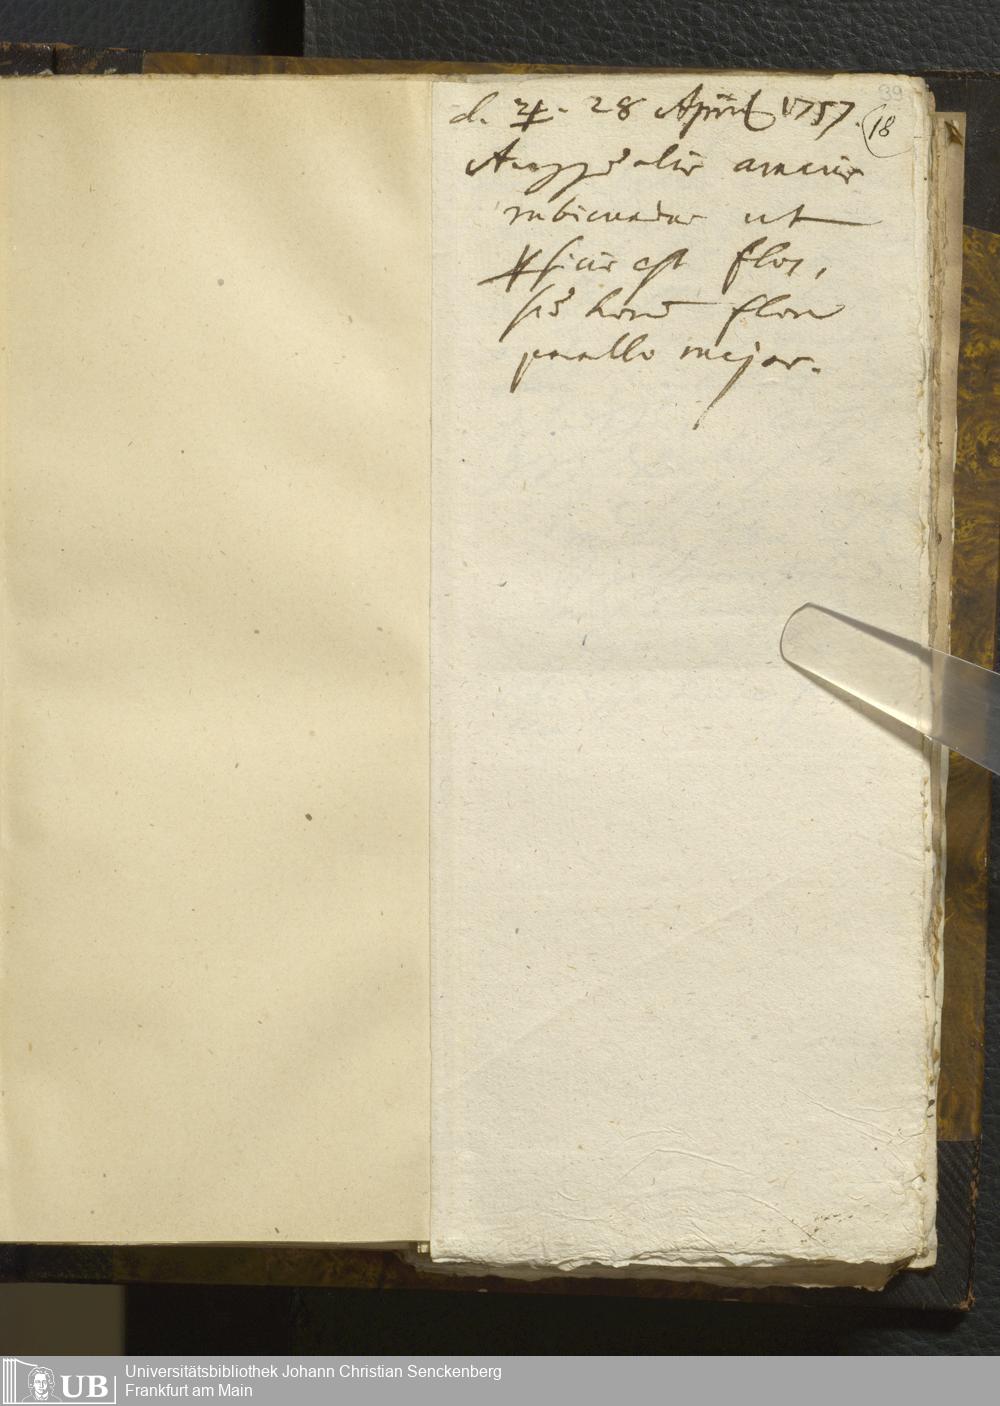 39
d. ♃. 28 April 1757. 18
Amygdalus amarus
rubicundus ut
⋕sicus est flos,
sed horum flore
paullo major.
UB Universitätsbibliothek Johann Christian Senckenberg
Frankfurt am Main